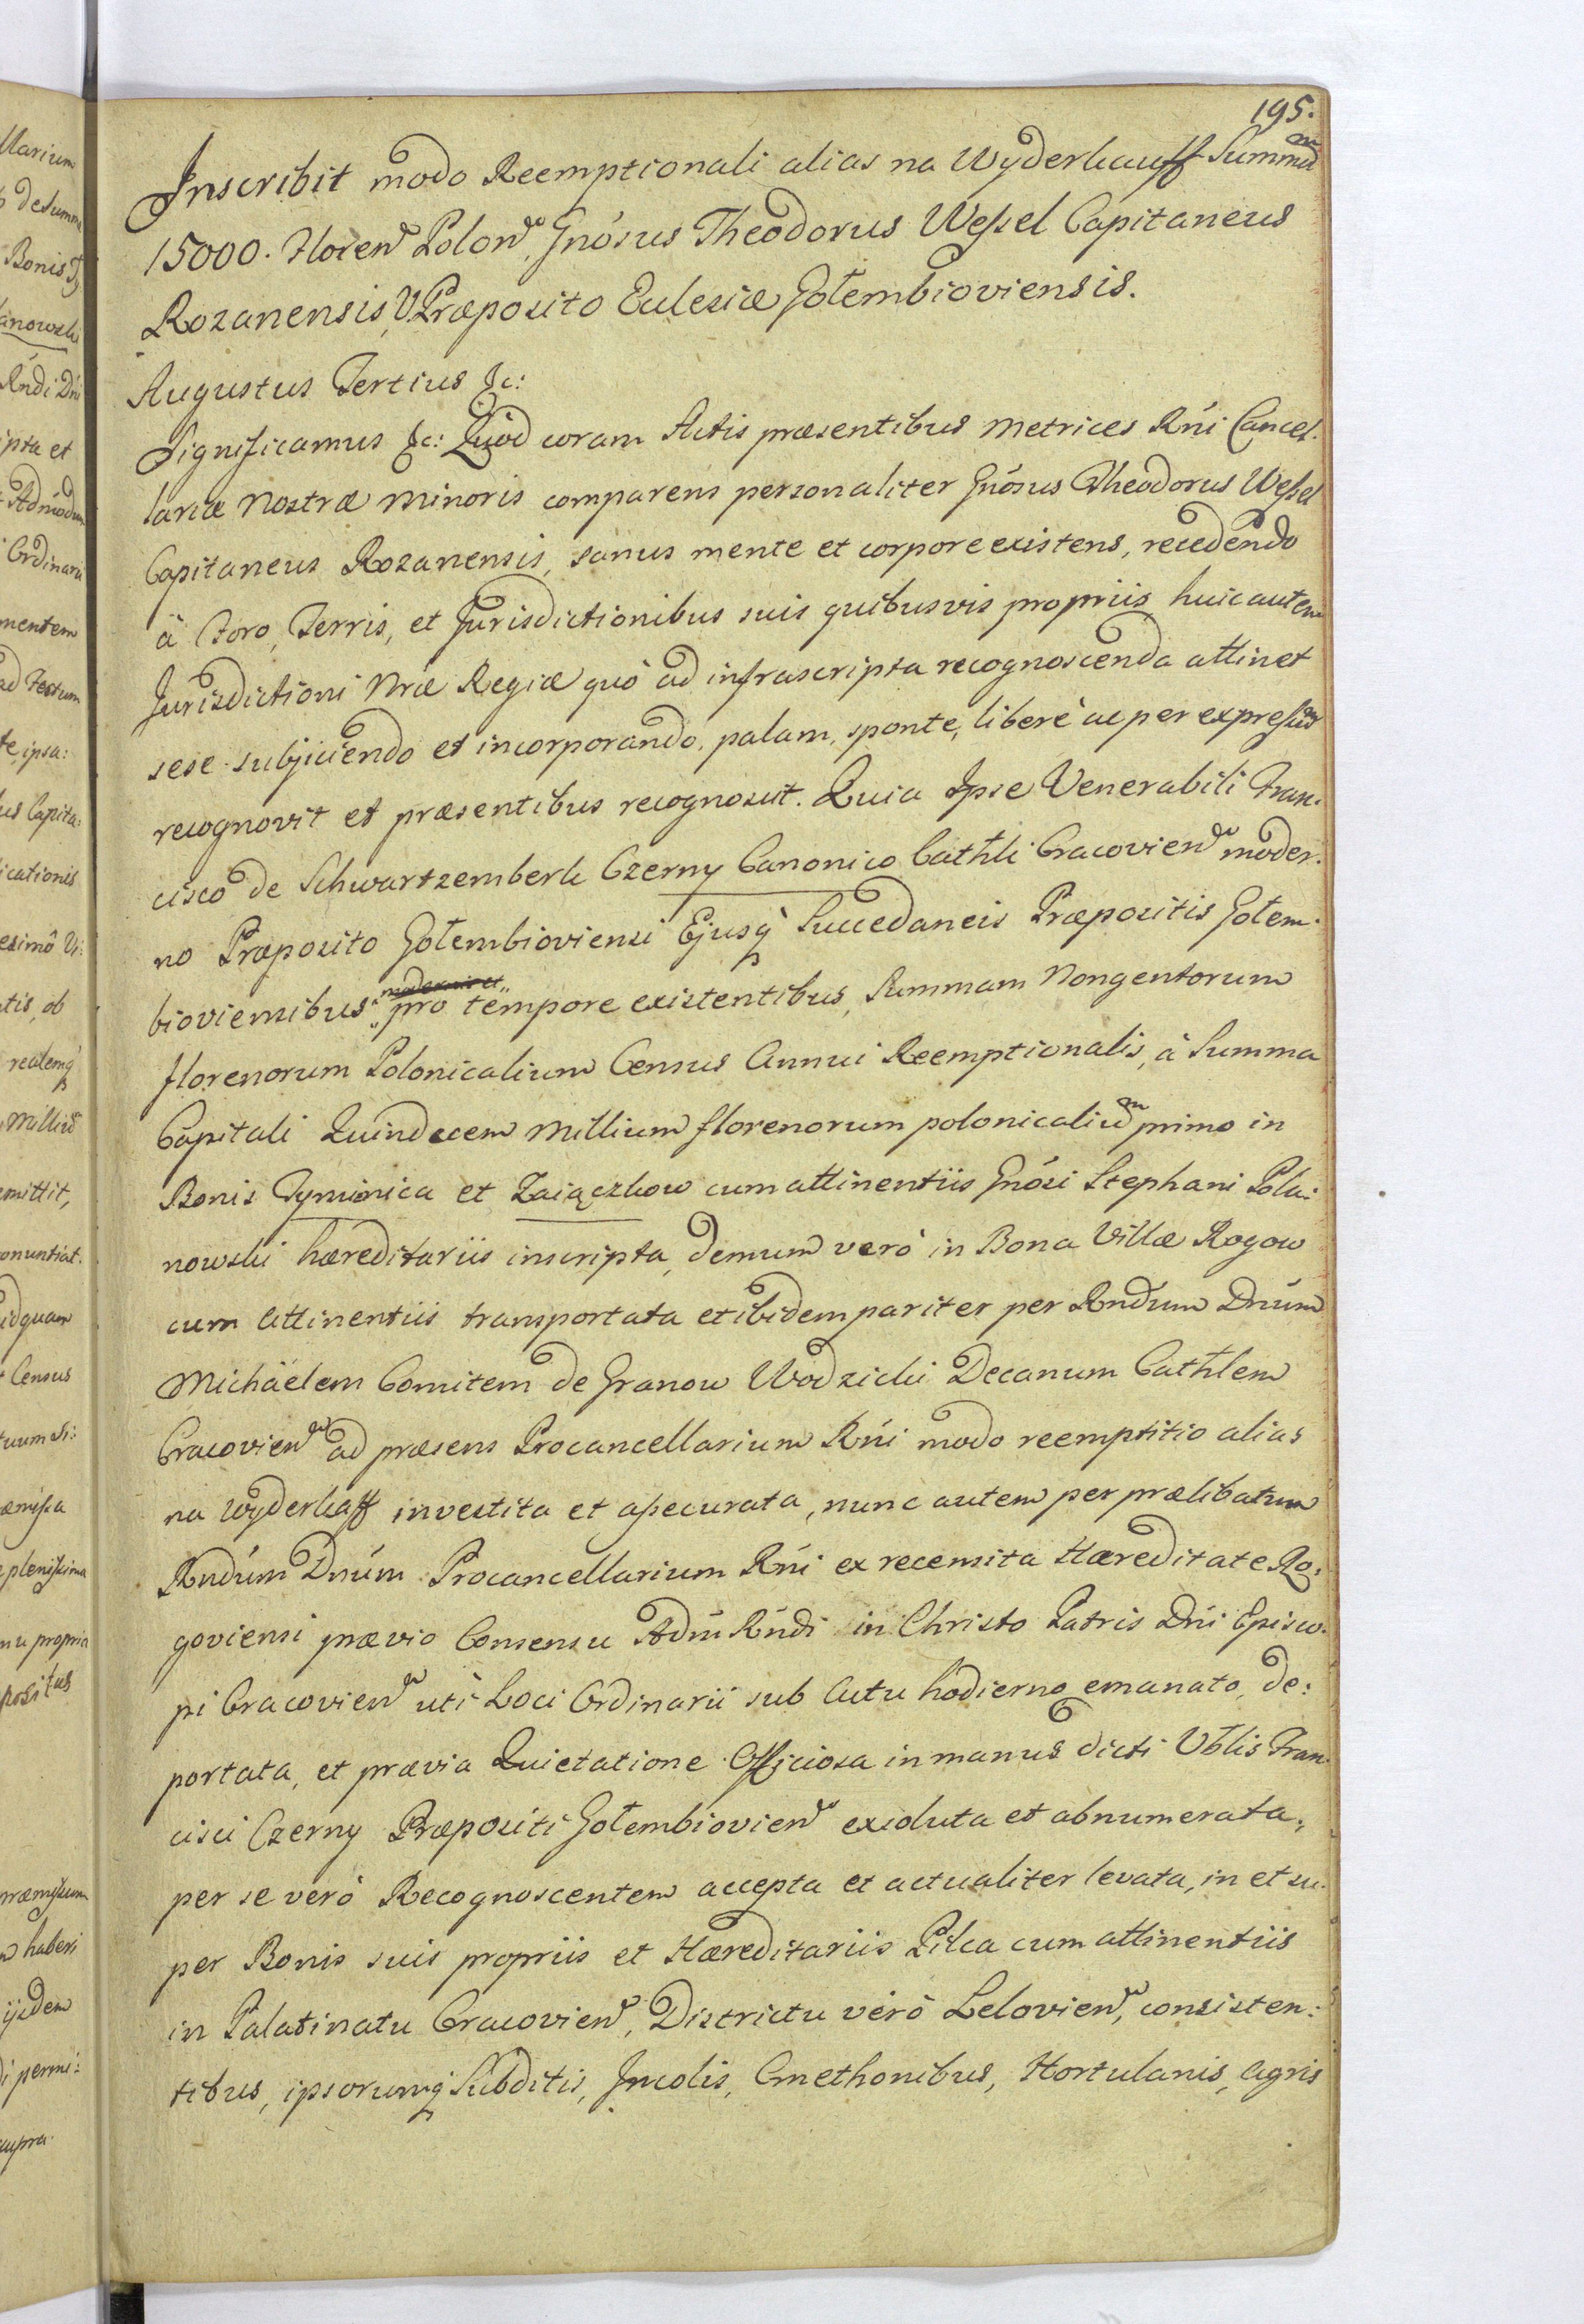 195.
Inscribit modo Reemptionali alias na Wyderkauff Summã
15000. Floren̄ Polon̄, Gnósus Theodorus Weſsel Capitaneus
Rozanensis, V. Præposito Eclesiæ Gołembioviensis.
Augustus Tertius &c:
Significamus &c: Quod coram Actis præsentibus Metrices Rńi Cancel-
lariæ Nostræ Minoris comparens personaliter Gnósus Theodorus Weſsel
Capitaneus Rozanensis, sanus mente et corpore existens, recedendo
à Foro, Terris, et Jurisdictionibus suis quibusvis propriis, huic autem
Jurisdictioni Nræ Regiæ quò ad infrascripta recognoscenda attinet
sese subjiciendo et incorporando, palam, sponte, liberè ac per expreſsũ
recognovit et præsentibus recognoscit. Quia Ipse Venerabili Fran-
cisco de Schwartzemberk Czerny Canonico Cathli Cracovien̄ moder-
no Præposito Gołembioviensi Ejusq̀ Succedaneis Præpositis Gołem-
moderno et
bioviensibus pro tempore existentibus, Summam Nongentorum
florenorum Polonicalium Census Annui Reemptionalis, à Summa
Capitali Quindecem Millium florenorum polonicaliũ primo in
Bonis Tyminica et Zaiączkow cum attinentiis Gnósi Stephani Pola:
nowski hæreditariis inscripta, demum verò in Bona Villæ Rogow
cum Attinentiis transportata et ibidem pariter per Rndum Dnúm
Michaëlem Comitem de Granow Wodzicki Decanum Cathlem
Cracovien̄ ad præsens Procancellarium Rńi modo reemptitio alias
na Wyderkaff investita et aſsecurata, nunc autem per prælibatum
Rndúm Dnúm Procancellarium Rńi ex recensita Hæreditate Ro:
goviensi prævio Consensu Adḿ Rńdi in Christo Patris Dńi Episco-
pi Cracovien̄ uti Loci Ordinarii sub Actu hodierno emanato, de:
portata, et prævia Quietatione Officiosa in manus dicti Vblis Fran-
cisci Czerny Præpositi Gołembiovien̄ exoluta et abnumerata,
per se verò Recognoscentem accepta et actualiter levata, in et su-
per Bonis suis propriis et Hæreditariis Pilca cum attinentiis
in Palatinatu Cracovien̄, Districtu verò Lelovien̄, consisten:
tibus, ipsorumq̀ Subditis, Incolis, Cmethonibus, Hortulanis, Agris